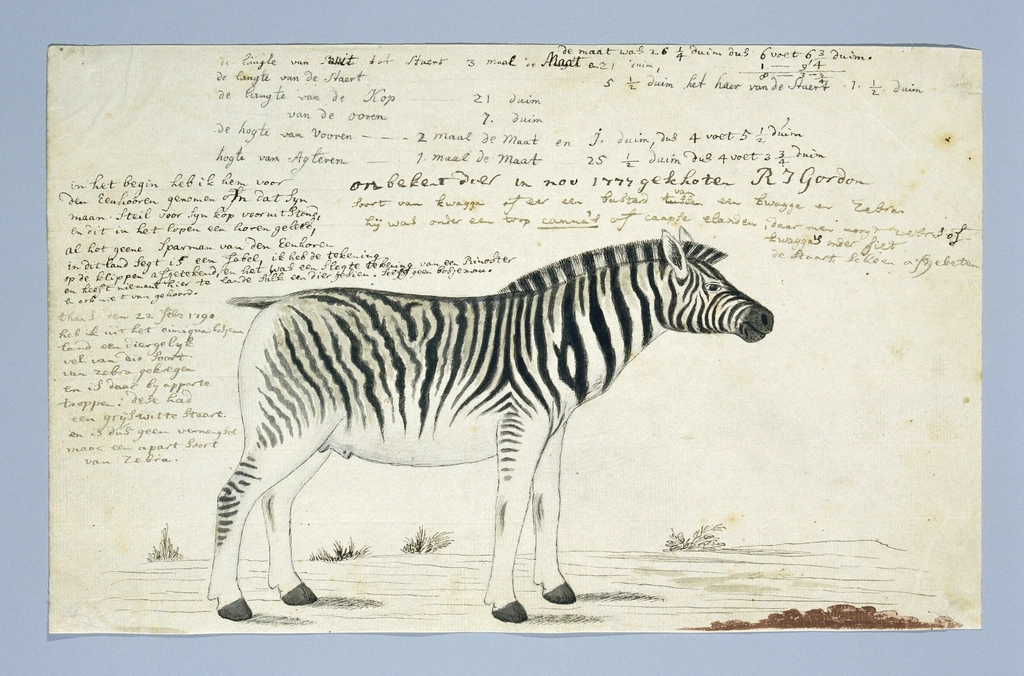 de maat was 26 1/4 duim dus 6 voet 6 3/4 duim.
de langte van snuit tot staert 3 maal de Maat en 21 duim,
1 — 9 4
de langte van de Staert 5 1/2 duim het haer van de Staert 7. 1/2. duim
de langte van de Kop — 21 duim
van de ooren 7. duim
de hogte van Vooren — 2 maal de Maat en j. duim, dus 4 voet 5 1/2 duim
hogte van Agteren — 1 maal de Maat 25 1/2 duim dus 4 voet 3 3/4 duim
onbekent dier in nov 1777 geschoten R J Gordon
soort van kwagga of eer een bastad tussen van een kwagga en Zebra
hij was onder een trop cannas of caapse elanden, daar men nooyt zebras of
kwagga's onder siet
de staart scheen afgebeten
in het begin heb ik hem voor
den Eenhooren genomen om dat syn
maan steil voor syn kop vooruit stont,
en dit in het lopen een horen geleek,
al het geene Sparman van den Eenhoren
in dit land segt is een fabel, ik heb de tekening
op de klippen afgetekend, en het was een slegte tekening van een Rinoster
en heeft niemant hier te lande sulk een dier gesien. selfs geen bosjeman.
en ook niet van gehoord.
thans den 22 febr 1790
heb ik uit het eimiqua
land een diergelyk
vel van dio soort
van zebra gekregen
en is daar by apporte
troppen: dese had
een grijswitte staart.
en is dus geen
maar een apart soort
van Zebra.